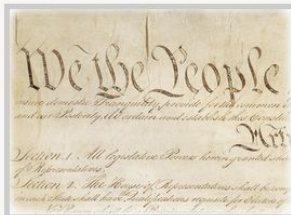 We the People
insure domestic Tranquility, provide for the common
and our Posterity, do ordain and establish this Constit
Artic
Section. 1. All legislative Powers herein granted shall
of Representatives.
Section. 2. The House of Representatives shall be comp
in each State shall have Qualifications requisite for Electors of